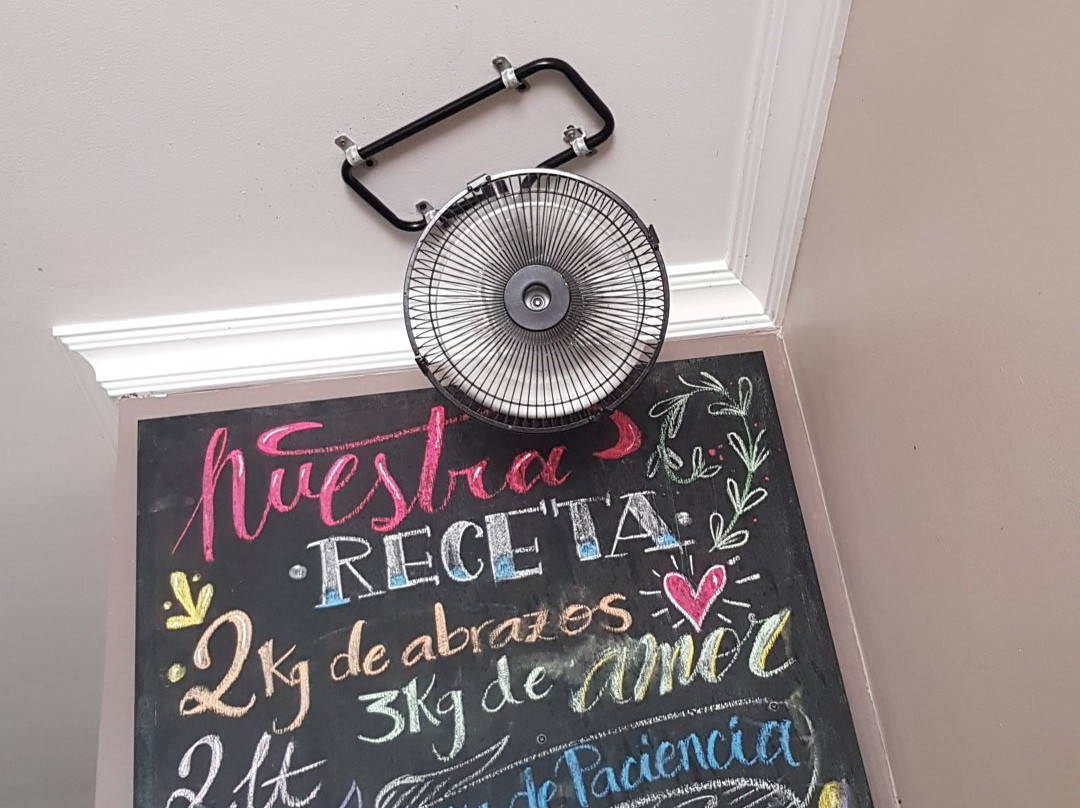 nuestra
RECETA
2Kg de abrazos
3Kg de amor
2 lt de Paciencia